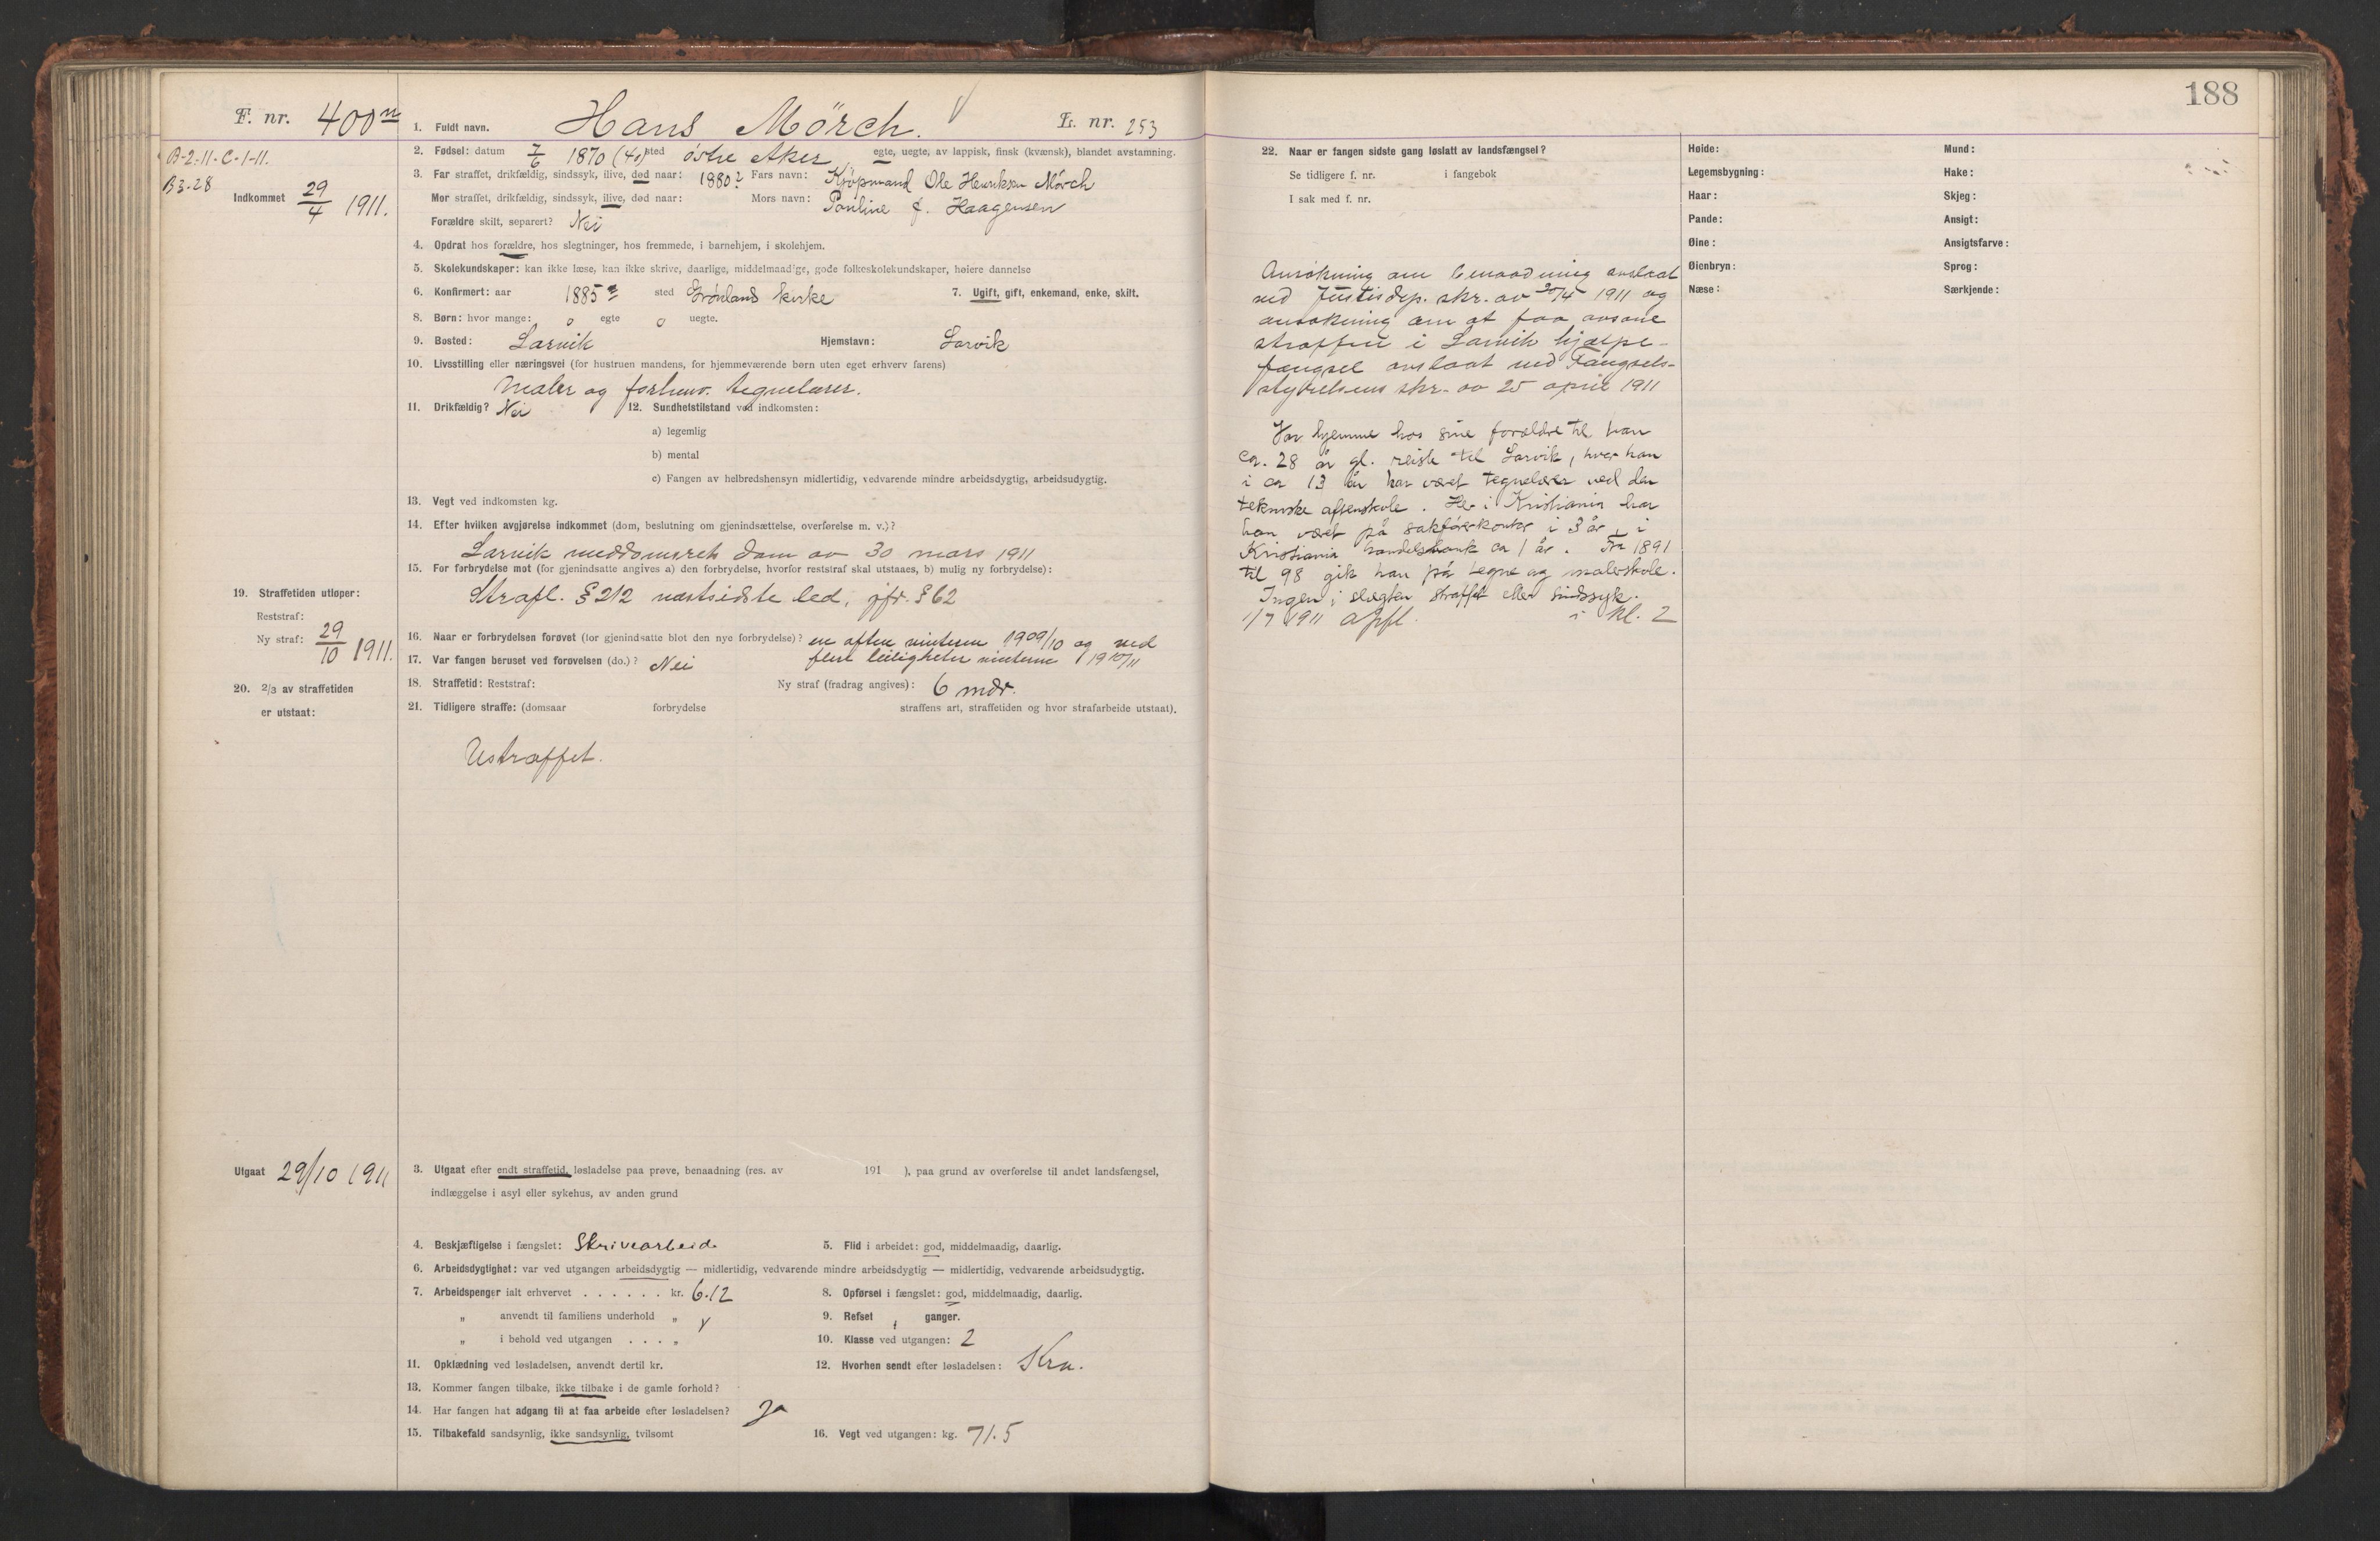 188
F. nr. 400
B-2-11-C-1-11.
B3-28
Indkommet 29/4 1911.
1. Fuldt navn. Hans Mörch. L. nr. 253
2. Fødsel: datum 7/6 1870 (40) sted østre Aker, egte, uegte, av lappisk, finsk (kvænsk), blandet avstamning.
3. Far straffet, drikfældig, sindssyk, ilive, død naar: 1880? Fars navn: Kjöpmand Ole Henriksen Mörch
Mor straffet, drikfældig, sindssyk, ilive, død naar: Mors navn: Pauline f. Haagensen
Forældre skilt, separert? Nei
4. Opdrat hos forældre, hos slegtninger, hos fremmede, i barnehjem, i skolehjem.
5. Skolekundskaper: kan ikke læse, kan ikke skrive, daarlige, middelmaadige, gode folkeskolekundskaper, høiere dannelse
6. Konfirmert: aar 1885? sted Grönlands kirke 7. Ugift, gift, enkemand, enke, skilt.
8. Børn: hvor mange: 0 egte 0 uegte.
9. Bosted: Larvik Hjemstavn: Larvik
10. Livsstilling eller næringsvei (for hustruen mandens, for hjemmeværende børn uten eget erhverv farens)
Maler og forhenv. tegnelærer.
11. Drikfældig? Nei 12. Sundhetstilstand ved indkomsten:
a) legemlig
b) mental
c) Fangen av helbredshensyn midlertidig, vedvarende mindre arbeidsdygtig, arbeidsudygtig.
13. Vegt ved indkomsten kg.
14. Efter hvilken avgjørelse indkommet (dom, beslutning om gjenindsættelse, overførelse m. v.)?
Larvik meddomsrets dom av 30 mars 1911
15. For forbrydelse mot (for gjenindsatte angives a) den forbrydelse, hvorfor reststraf skal utstaaes, b) mulig ny forbrydelse):
Strafl. § 212 næstsidste led, jfr. § 62
19. Straffetiden utløper:
Reststraf:
Ny straf: 29/10 1911.
16. Naar er forbrydelsen forøvet (for gjenindsatte blot den nye forbrydelse)? en aften vinteren 1909/10 og ved
17. Var fangen beruset ved forøvelsen (do.)? Nei flere leiligheter vinteren 1910/11
20. 2/3 av straffetiden
er utstaat:
18. Straffetid: Reststraf: Ny straf (fradrag angives): 6 mdr.
21. Tidligere straffe: (domsaar forbrydelse straffens art, straffetiden og hvor strafarbeide utstaat).
Ustraffet.
Utgaat 29/10 1911
3. Utgaat efter endt straffetid, løsladelse paa prøve, benaadning (res. av 191 ), paa grund av overførelse til andet landsfængsel,
indlæggelse i asyl eller sykehus, av anden grund
4. Beskjæftigelse i fængslet: Skrivearbeid. 5. Flid i arbeidet: god, middelmaadig, daarlig.
6. Arbeidsdygtighet: var ved utgangen arbeidsdygtig — midlertidig, vedvarende mindre arbeidsdygtig — midlertidig, vedvarende arbeidsudygtig.
7. Arbeidspenger ialt erhvervet . . . . . . kr. 6.12 8. Opførsel i fængslet: god, middelmaadig, daarlig.
" anvendt til familiens underhold " 9. Refset ganger.
" i behold ved utgangen . . . " 10. Klasse ved utgangen: 2
11. Opklædning ved løsladelsen, anvendt dertil kr. 12. Hvorhen sendt efter løsladelsen: Kra.
13. Kommer fangen tilbake, ikke tilbake i de gamle forhold?
14. Har fangen hat adgang til at faa arbeide efter løsladelsen? Ja
15. Tilbakefald sandsynlig, ikke sandsynlig, tvilsomt 16. Vegt ved utgangen: kg. 71.5
22. Naar er fangen sidste gang løslatt av landsfængsel?
Se tidligere f. nr. i fangebok
I sak med f. nr.
Ansökning om benaadning avslaat
ved Justisdep. skr. av 20/4 1911 og
ansökning om at faa avsone
straffen i Larvik hjælpe-
fængsel avslaat ved Fængsels-
styrelsens skr. av 25 april 1911
Var hjemme hos sine forældre til han
ca. 28 år gl. reiste til Larvik, hvor han
i ca 13 år har været tegnelærer ved den
tekniske aftenskole. Her i Kristiania har
han været på sakförerkontor i 3 år, i
Kristiania handelsbank ca 1 år. Fra 1891
til 98 gik han på tegne og malerskole.
Ingen i slægten straffet eller sindssyk.
1/7 1911 opfl. i kl. 2
Høide:
Legemsbygning:
Haar:
Pande:
Øine:
Øienbryn:
Næse:
Mund:
Hake:
Skjeg:
Ansigt:
Ansigtsfarve:
Sprog:
Særkjende: